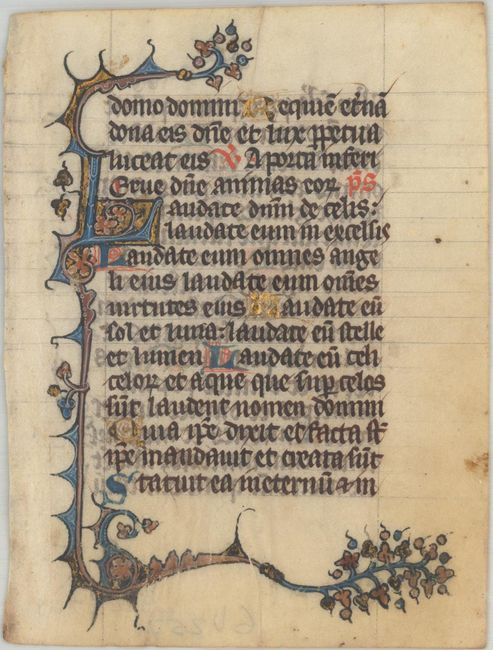 domo domini Requiē et̄nā
dona eis dn̄e et lux ꝑpetua
luceat eis ℟ A porta inferi
Erue dn̄e animas eoꝝ p̄s
Laudate dn̄m de celis:
laudate eum in excelsis
Laudate eum omnes ange
li eius laudate eum om̄es
uirtutes eius Laudate eū
sol et luna: laudate eū stelle
et lumen Laudate eū celi
celoꝝ et aque que suꝑ celos
sūt laudent nomen domini
Quia ip̄e dixit et facta sūt
ip̄e mandauit et creata sūt
Statuit ea in eternū ⁊ in